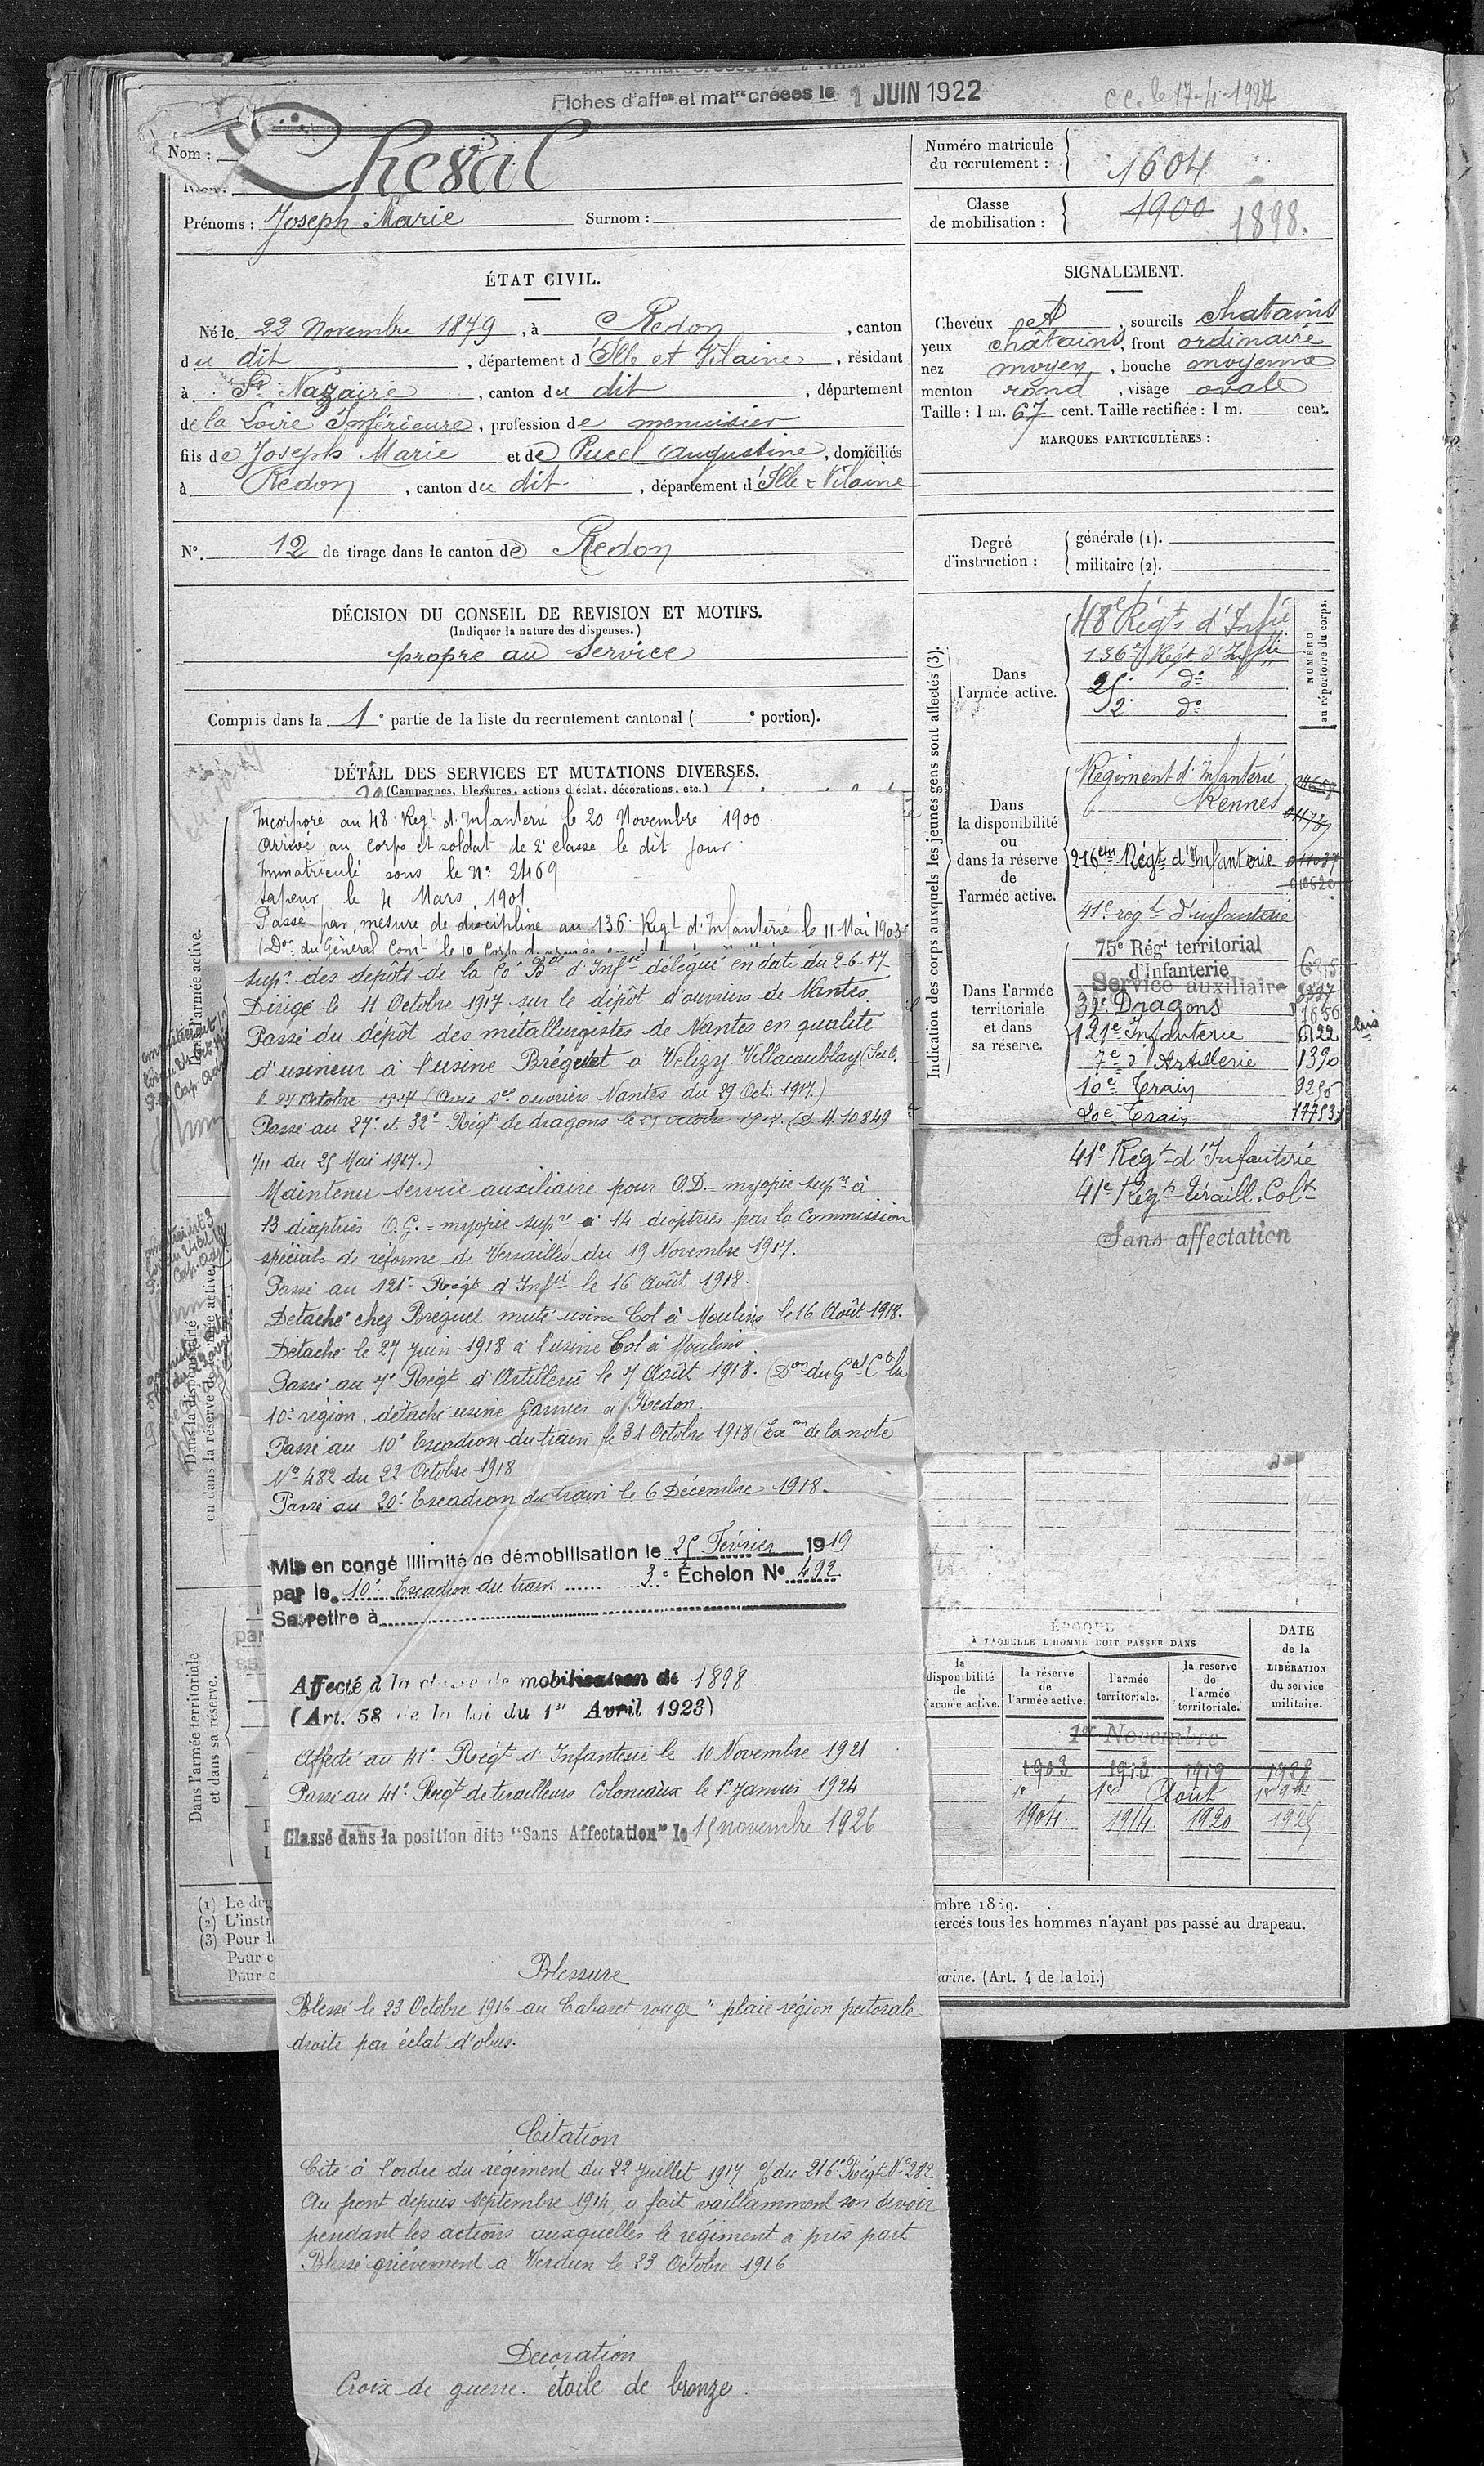 Fiches d'affon et matre créées le 1 JUIN 1922
c c. le 17-4-1927
Nom :
Cheval
Prénoms : Joseph Marie Surnom :
Numéro matricule
du recrutement : 1604
Classe
de mobilisation : 1900 1898.
ÉTAT CIVIL.
Né le 22 Novembre 1879, à Redon, canton
du dit, département d'Ille et Vilaine, résidant
à St Nazaire, canton du dit, département
de la Loire Inférieure, profession de menuisier
fils de Joseph Marie et de Pucel Augustine, domiciliés
à Redon, canton du dit, département d'Ille & Vilaine
N° 12 de tirage dans le canton de Redon
SIGNALEMENT.
Cheveux et, sourcils chatains
yeux châtains, front ordinaire
nez moyen, bouche moyenne
menton rond, visage ovale
Taille : 1 m. 67 cent. Taille rectifiée : 1 m. cent.
MARQUES PARTICULIÈRES :
Degré
d'instruction :
générale (1).
militaire (2).
DÉCISION DU CONSEIL DE REVISION ET MOTIFS.
(Indiquer la nature des dispenses.)
propre au service
Compris dans la 1e partie de la liste du recrutement cantonal ( e portion).
DÉTAIL DES SERVICES ET MUTATIONS DIVERSES.
(Campagnes, blessures, actions d'éclat, décorations, etc.)
Incorporé au 48e Regt d'Infanterie le 20 Novembre 1900.
Arrivé au corps et soldat de 2e classe le dit jour
Immatriculé sous le N° 2469
Sapeur le 4 Mars 1901
Passé par mesure de discipline au 136e Regt d'Infanterie le 11 Mai 1903
(Don du Général Comt le 10e Corps d'armée
supr des dépôts de la 60e Bde d'Infrie délégué en date du 2-6-17
Dirigé le 11 Octobre 1917 sur le dépôt d'ouvriers de Nantes
Passé du dépôt des métallurgistes de Nantes en qualité
d'usineur à l'usine Bréguet à Velizy-Villacoublay (S et O.
le 27 Octobre 1917 (Avis des ouvriers Nantes du 29 Oct. 1917.)
Passé au 27e et 32e Regt de dragons le 27 octobre 1917. (D.M. 10849
1/11 du 25 Mai 1917.)
Maintenu service auxiliaire pour O.D. - myopie supre à
13 dioptries O.G. = myopie supre à 14 dioptries par la Commission
spéciale de réforme de Versailles du 19 Novembre 1917.
Passé au 121e Regt d'Infrie le 16 Août 1918.
Détaché chez Bréguet muté usine Col à Moulins le 16 Août 1918.
Détaché le 27 juin 1918 à l'usine Col à Moulins.
Passé au 7e Regt d'Artillerie le 7 Août 1918. (Don du Gal Ct la
10e région, détaché usine Garnier à Redon.
Passé au 10e Escadron du train le 31 Octobre 1918 (Exon de la note
N° 482 du 22 Octobre 1918
Passé au 20e Escadron du train le 6 Décembre 1918.
Mis en congé illimité de démobilisation le 25 Février 1919
par le 10e Escadron du train 3e Échelon N° 492
Se retire à
Affecté à la classe de mobilisation de 1898.
(Art. 58 de la loi du 1er Avril 1923)
Affecté au 41e Regt d'Infanterie le 10 Novembre 1921
Passé au 41e Regt de tirailleurs Coloniaux le 1er Janvier 1924
Classé dans la position dite "Sans Affectation" le 15 novembre 1926
Blessure
Blessé le 23 Octobre 1916 au Cabaret rouge "plaie région pectorale
droite par éclat d'obus.
Citation
Cité à l'ordre du régiment du 22 Juillet 1917 % du 216e Régt N° 282
Au front depuis septembre 1914, a fait vaillamment son devoir
pendant les actions auxquelles le régiment a pris part
Blessé grièvement à Verdun le 23 Octobre 1916
Décoration
Croix de guerre. étoile de bronze.
Indication des corps auxquels les jeunes gens sont affectés (3).
NUMÉRO
au répertoire du corps.
Dans
l'armée active.
48e Régt d'Infie
136e Régt d'Infie
25e do
2e do
Dans
la disponibilité
ou
dans la réserve
de
l'armée active.
Régiment d'Infanterie
Rennes
216eme Régt d'Infanterie
41e régt d'infanterie
Dans l'armée
territoriale
et dans
sa réserve.
75e Régt territorial
d'Infanterie 6315
Service auxiliaire
32e Dragons
121e Infanterie 6122 bis
7e d'Artillerie 1390
10e Train 9256
20e Train
41e Régt d'Infanterie
41e Régt tiraill. Colx
Sans affectation
l'armée active.
Dans la disponibilité
ou dans la réserve de l'armée active.
Dans l'armée territoriale
et dans sa réserve.
ÉPOQUE
À LAQUELLE L'HOMME DOIT PASSER DANS
DATE
de la
LIBÉRATION
du service
militaire.
la
disponibilité
de
l'armée active.
la réserve
de
l'armée active.
l'armée
territoriale.
la reserve
de
l'armée
territoriale.
1er Novembre
1903 1913 1919 1925
1er 1er Août
1904. 1914 1920 1925
(1) Le deg
(2) L'instr
(3) Pour l
Pour c
Pour c
mbre 1889.
ercés tous les hommes n'ayant pas passé au drapeau.
arine. (Art. 4 de la loi.)